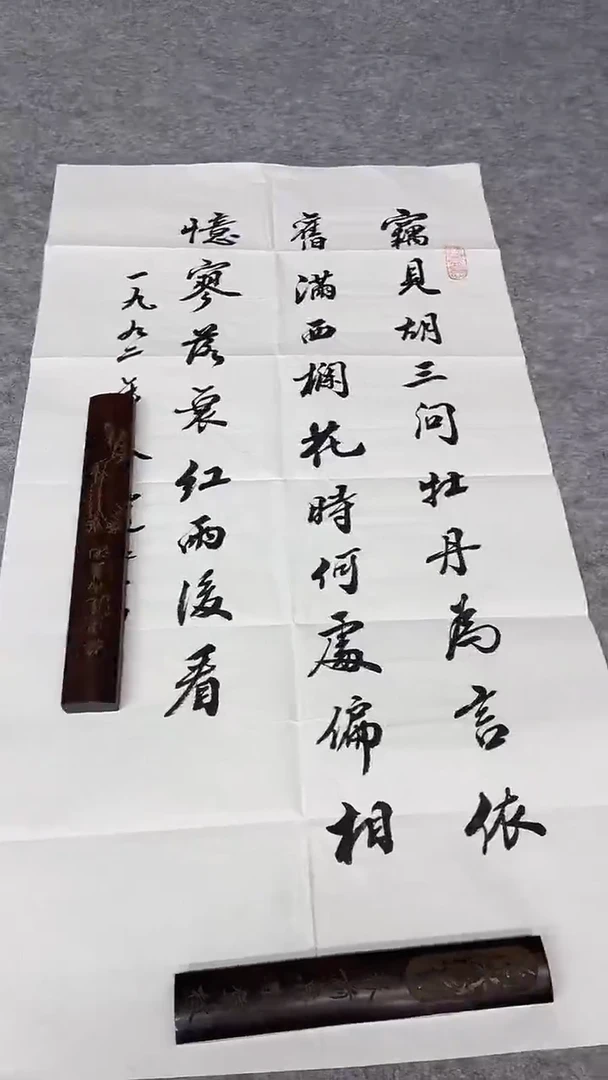 竊見胡三问牡丹為言依
舊满西欄花時何處偏相
憶寥落衰红雨後看
一九九二年